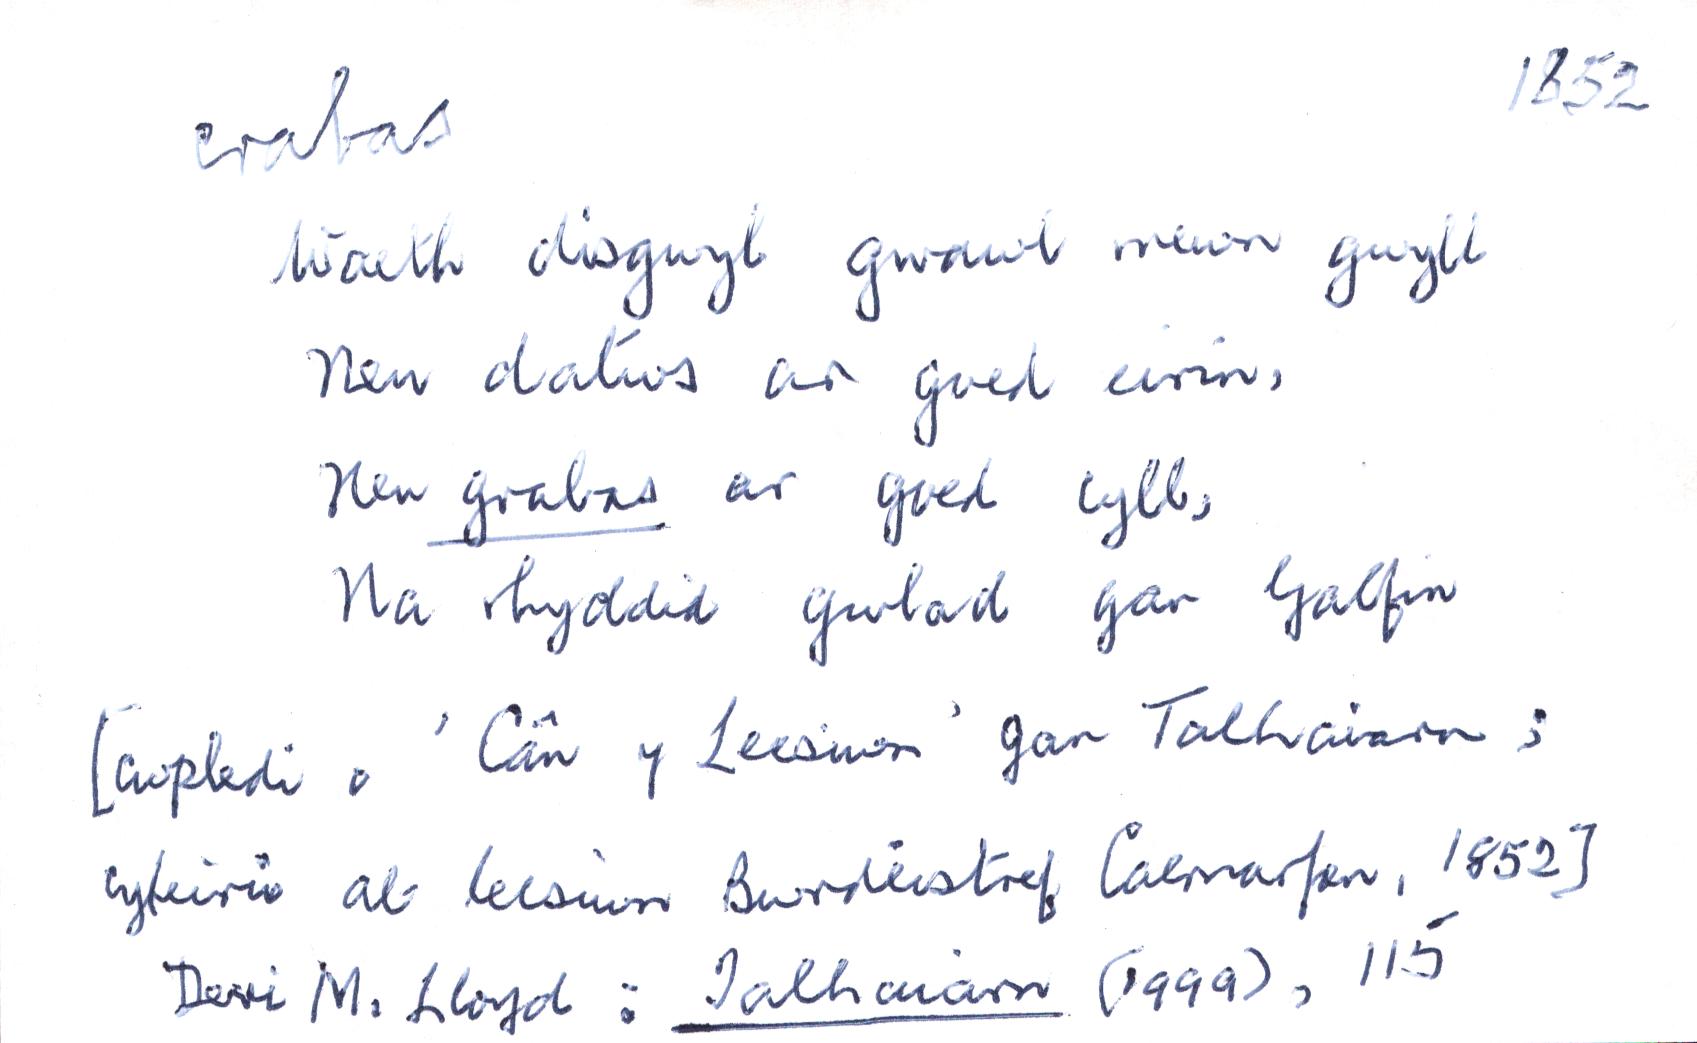 1852
crabas
Waeth disgwyl gwawl mewn gwyll
Neu datws ar goed eirin,
Neu grabas ar goed cyll,
Na rhyddid gwlad gan Galfin
[cwpledi o 'Cân y Lecsiwn' gan Talhaiarn;
cyfeirio at lecsiwn Bwrdëistref Caernarfon, 1852]
Dewi M. Lloyd : Talhaiarn (1999), 115